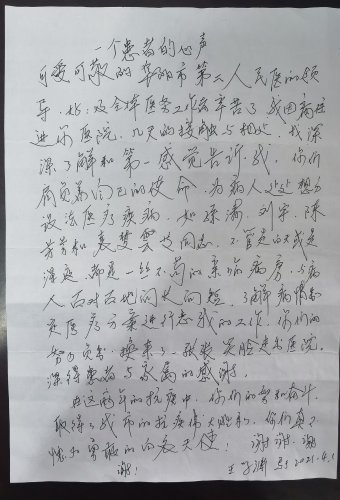 一个患者的心声
可爱可敬的 市第二人民医的领
导, 及全体医务工作者辛苦了, 我因病住
进你医院, 几天的接触与相处, 我深
深了解和第一感觉告诉我, 你们
肩负着自己的使命, 为病人 想方
设法医疗疾病, 如 刘宇、陈
芳芳和 同志, 不管是白天或是
深夜, 都是一丝不苟的亲临病房, 与病
人面对面地问长问短, 了解病情和
医疗方案进行忘我的工作, 你们的
努力 换来了一张张笑脸走出医院,
深得患者与家属的感谢。
在这两年的抗疫中, 你们的 和奋斗,
取得了我市的抗疫情大胜利, 你们真
不愧 勇敢的白衣天使! 谢谢、谢
谢!
王 2021.4.